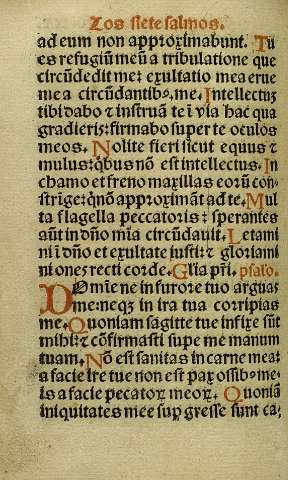 Los siete salmos.
ad eum non approximabunt. Tu
es refugiũ meũ a tribulatione que
circũdedit me: exultatio mea erue
me a circũdantibꝰ me. Intellectũ
tibi dabo ⁊ instruã te ĩ via hac qua
gradieris: firmabo super te oculos
meos. Nolite fieri sicut equus ⁊
mulus: q̃bus nõ est intellectus. In
chamo et freno maxillas eorũ con-
strige: q̃ nõ approximãt ad te. Mul
ta flagella peccatoris: sperantes
aũt in dño mĩa circũdauit. Letami
ni ĩ dño et exultate iusti: ⁊ gloriami
ni oñes recti corde. Glia pr̃i. psalo.
DOmine ne in furore tuo arguas
me: neqꝫ in ira tua corripias
me. Quoniam sagitte tue infixe sũt
mihi: ⁊ cõfirmasti supe me manum
tuam. Nõ est sanitas in carne mea:
a facie ire tue non est pax ossibꝰ me-
is a facie peccatoꝝ meoꝝ. Quoniã
iniquitates mee sup̱ gresse sunt ca: